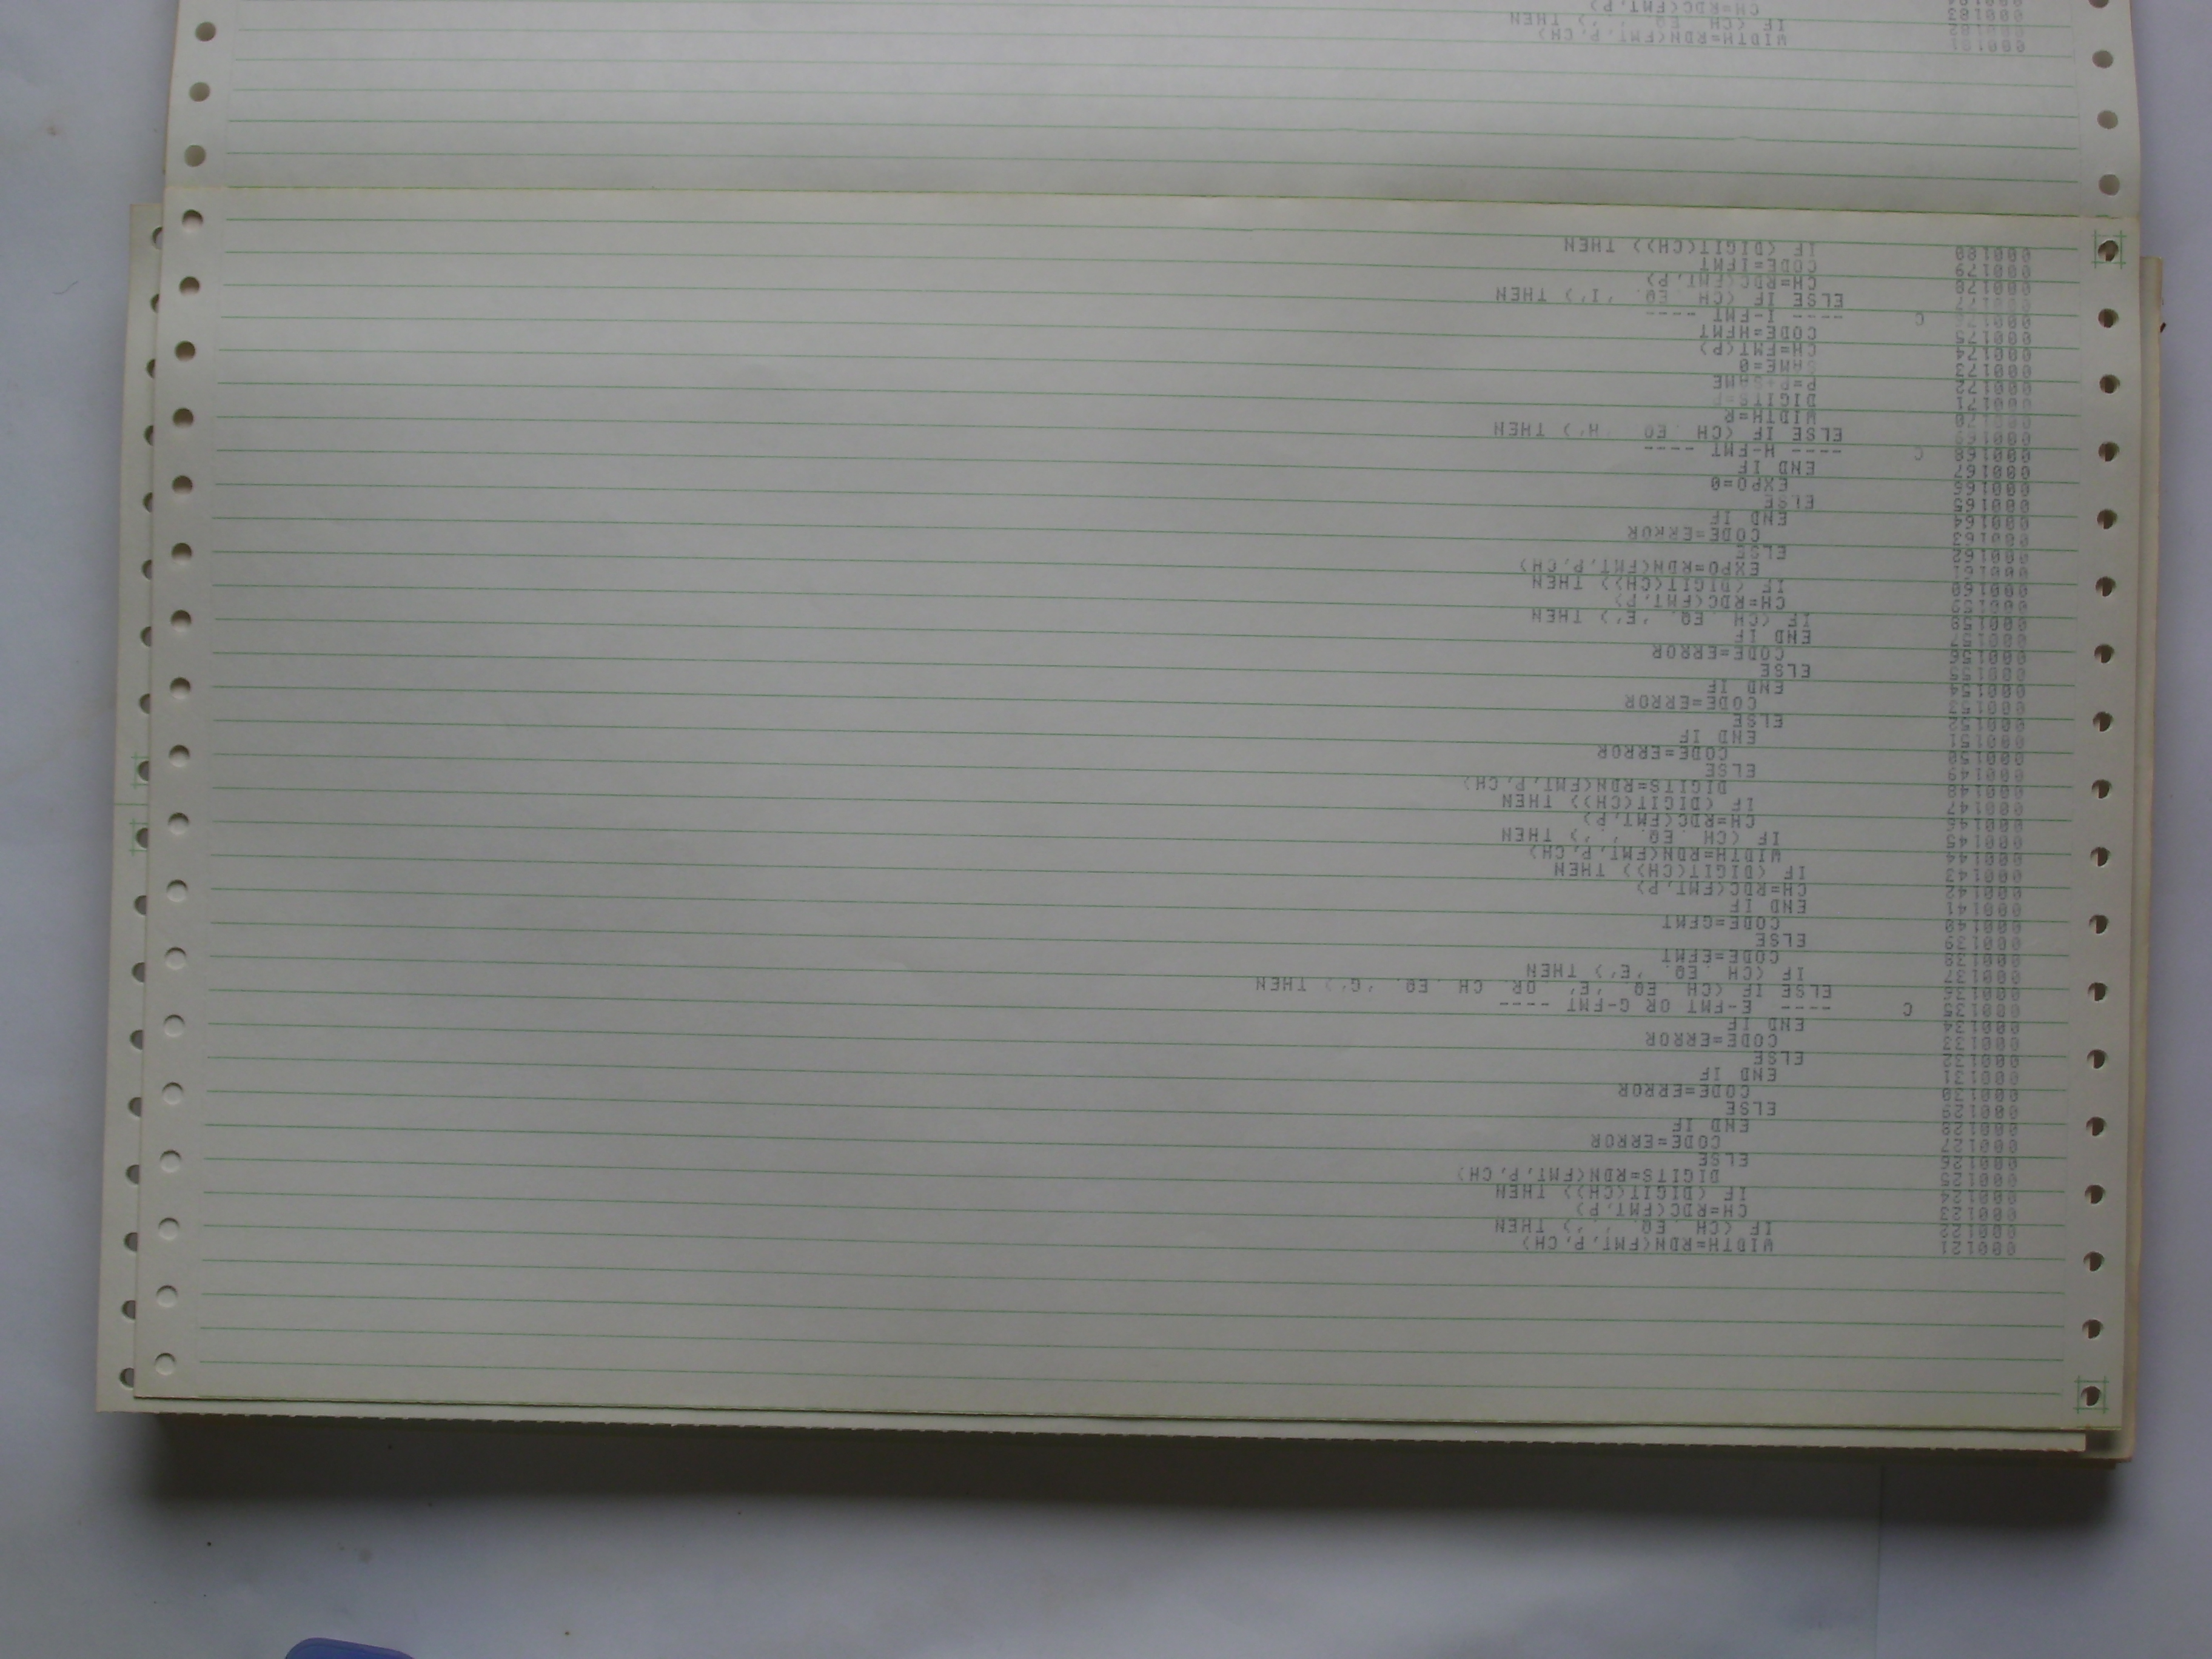 000121 WIDTH=RDN(FMT,P,CH)
000122 IF (CH .EQ. '.') THEN
000123 CH=RDC(FMT,P)
000124 IF (DIGIT(CH)) THEN
000125 DIGITS=RDN(FMT,P,CH)
000126 ELSE
000127 CODE=ERROR
000128 END IF
000129 ELSE
000130 CODE=ERROR
000131 END IF
000132 ELSE
000133 CODE=ERROR
000134 END IF
000135 C ---- E-FMT OR G-FMT ----
000136 ELSE IF (CH .EQ. 'E' .OR. CH .EQ. 'G') THEN
000137 IF (CH .EQ. 'E') THEN
000138 CODE=EFMT
000139 ELSE
000140 CODE=GFMT
000141 END IF
000142 CH=RDC(FMT,P)
000143 IF (DIGIT(CH)) THEN
000144 WIDTH=RDN(FMT,P,CH)
000145 IF (CH .EQ. '.') THEN
000146 CH=RDC(FMT,P)
000147 IF (DIGIT(CH)) THEN
000148 DIGITS=RDN(FMT,P,CH)
000149 ELSE
000150 CODE=ERROR
000151 END IF
000152 ELSE
000153 CODE=ERROR
000154 END IF
000155 ELSE
000156 CODE=ERROR
000157 END IF
000158 IF (CH .EQ. 'E') THEN
000159 CH=RDC(FMT,P)
000160 IF (DIGIT(CH)) THEN
000161 EXPO=RDN(FMT,P,CH)
000162 ELSE
000163 CODE=ERROR
000164 END IF
000165 ELSE
000166 EXPO=0
000167 END IF
000168 C ---- H-FMT ----
000169 ELSE IF (CH .EQ. 'H') THEN
000170 WIDTH=R
000171 DIGITS=P
000172 P=P+SAME
000173 SAME=0
000174 CH=FMT(P)
000175 CODE=HFMT
000176 C ---- I-FMT ----
000177 ELSE IF (CH .EQ. 'I') THEN
000178 CH=RDC(FMT,P)
000179 CODE=IFMT
000180 IF (DIGIT(CH)) THEN
000181 WIDTH=RDN(FMT,P,CH)
000182 IF (CH .EQ. '.') THEN
000183 CH=RDC(FMT,P)